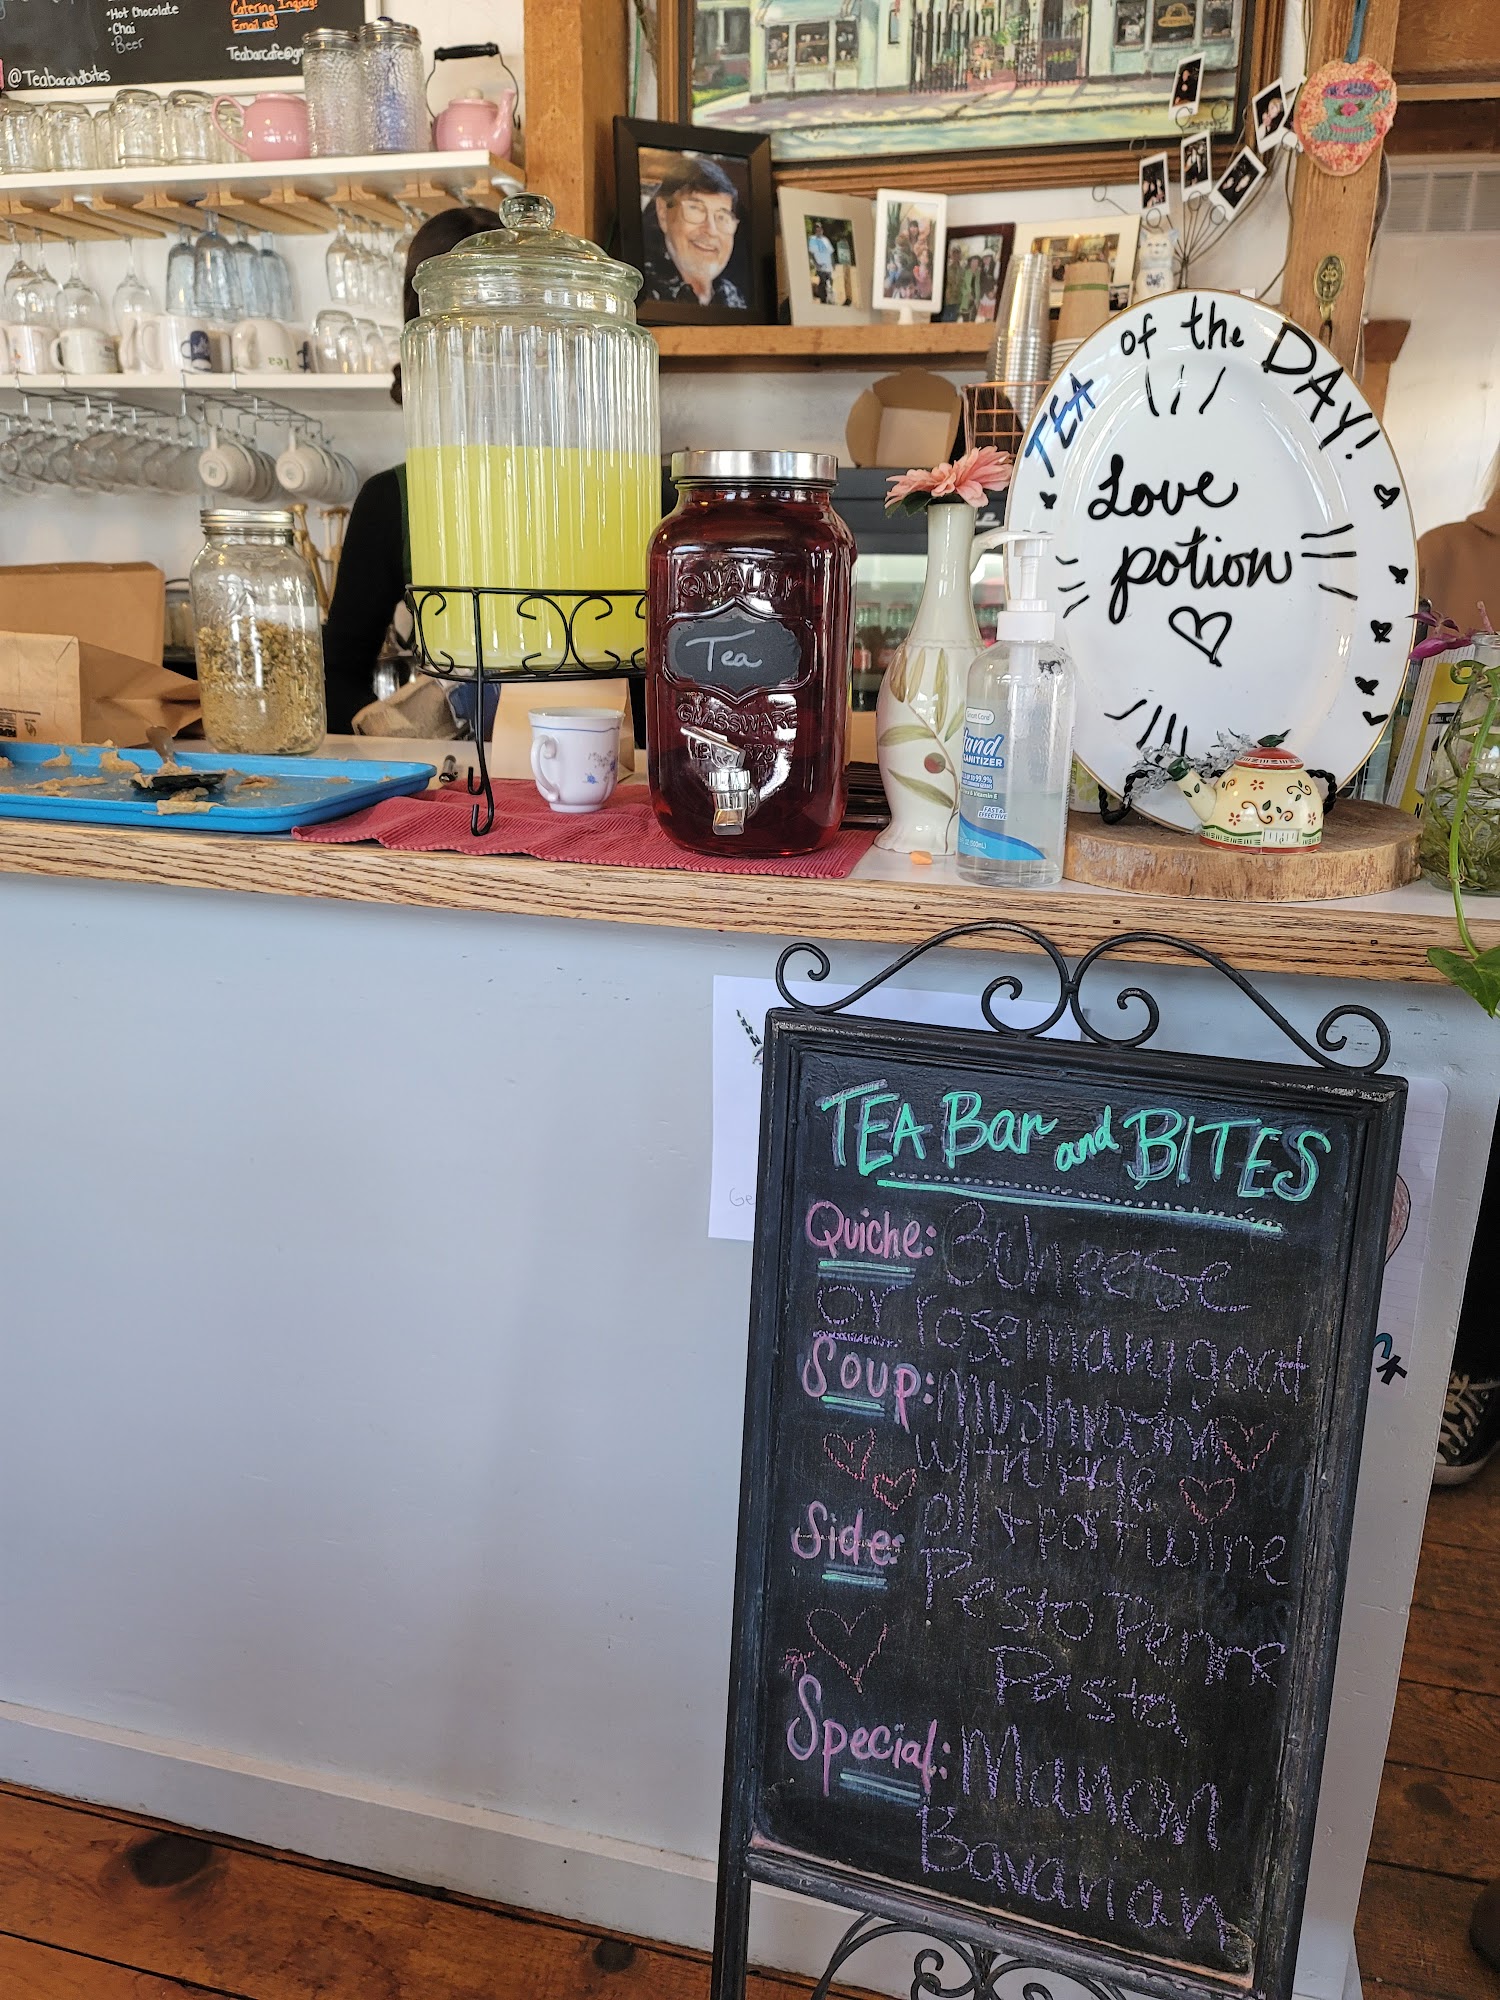 •Hot Chocolate
•Chai
•Beer
Catering Inquiry?
Email us!
@Teabarandbites
Tea
QUALITY
Tea
GLASSWARE
TEA of the DAY!
Love
potion
Hand
SANITIZER
FAST &
EFFECTIVE
TEA Bar and BITES
Quiche: 3 cheese
or rosemary goat
Soup: Mushroom
Side:
oil + port wine
Pesto Penne
Pasta
Special: Manon
Bavarian